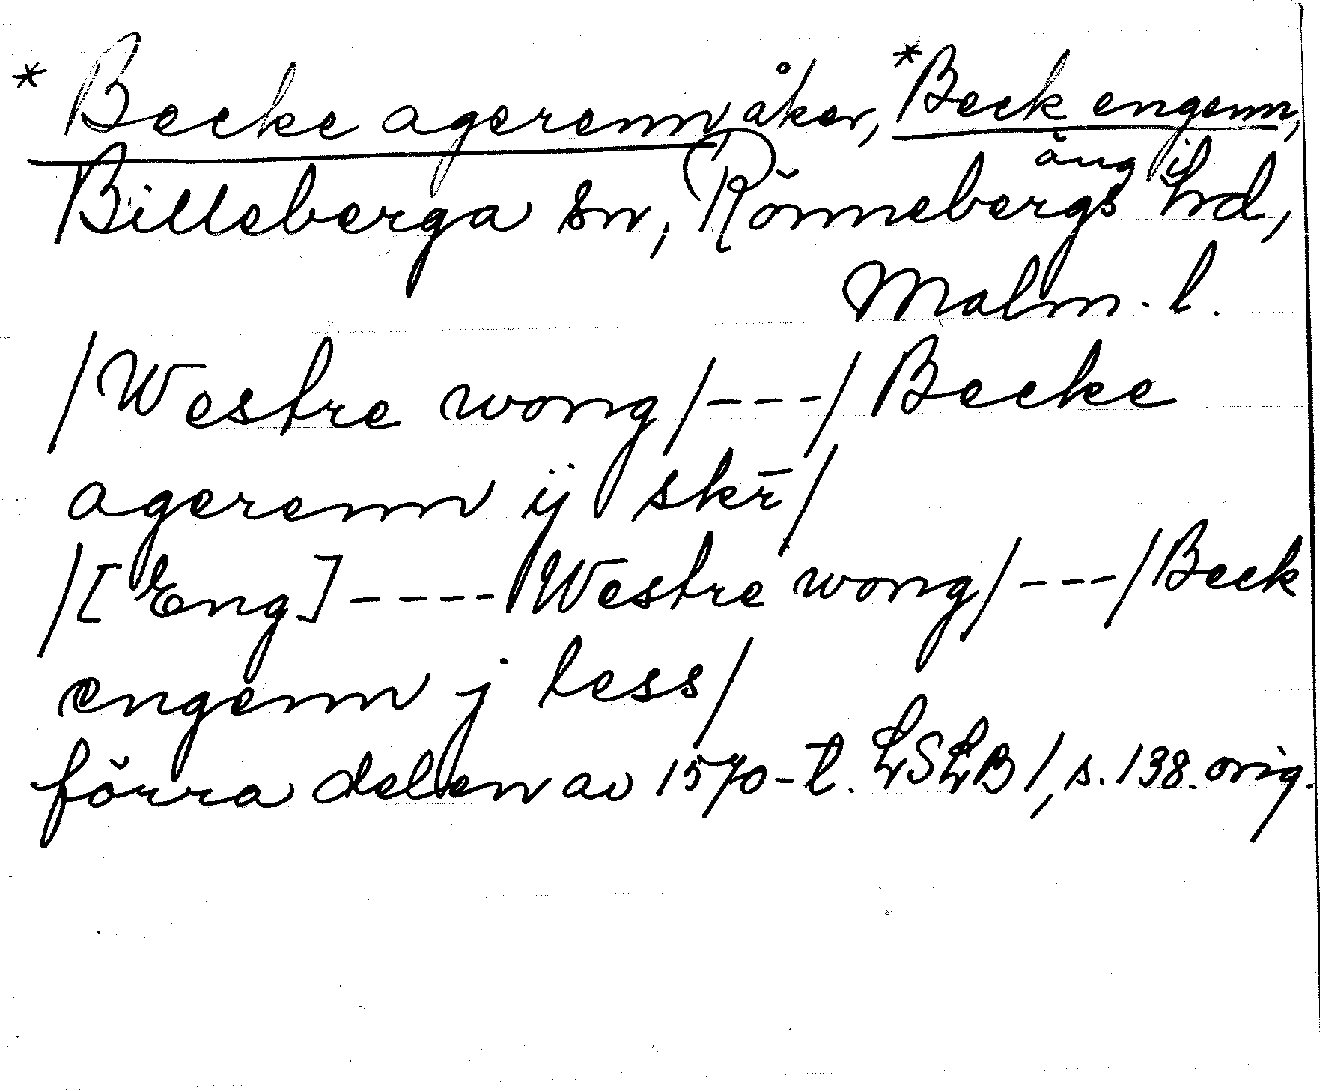 * Becke agerenn, åker, * Beck engenn,
äng i
Billeberga sn, Rönnebergs hd,
Malm. l.
/Westre wong/---/Becke
agerenn ij skr̄/
/[Eng]----Westre wong/---/Beck
engenn j less/
förra delen av 1570-t. LSLB 1, s. 138. orig.